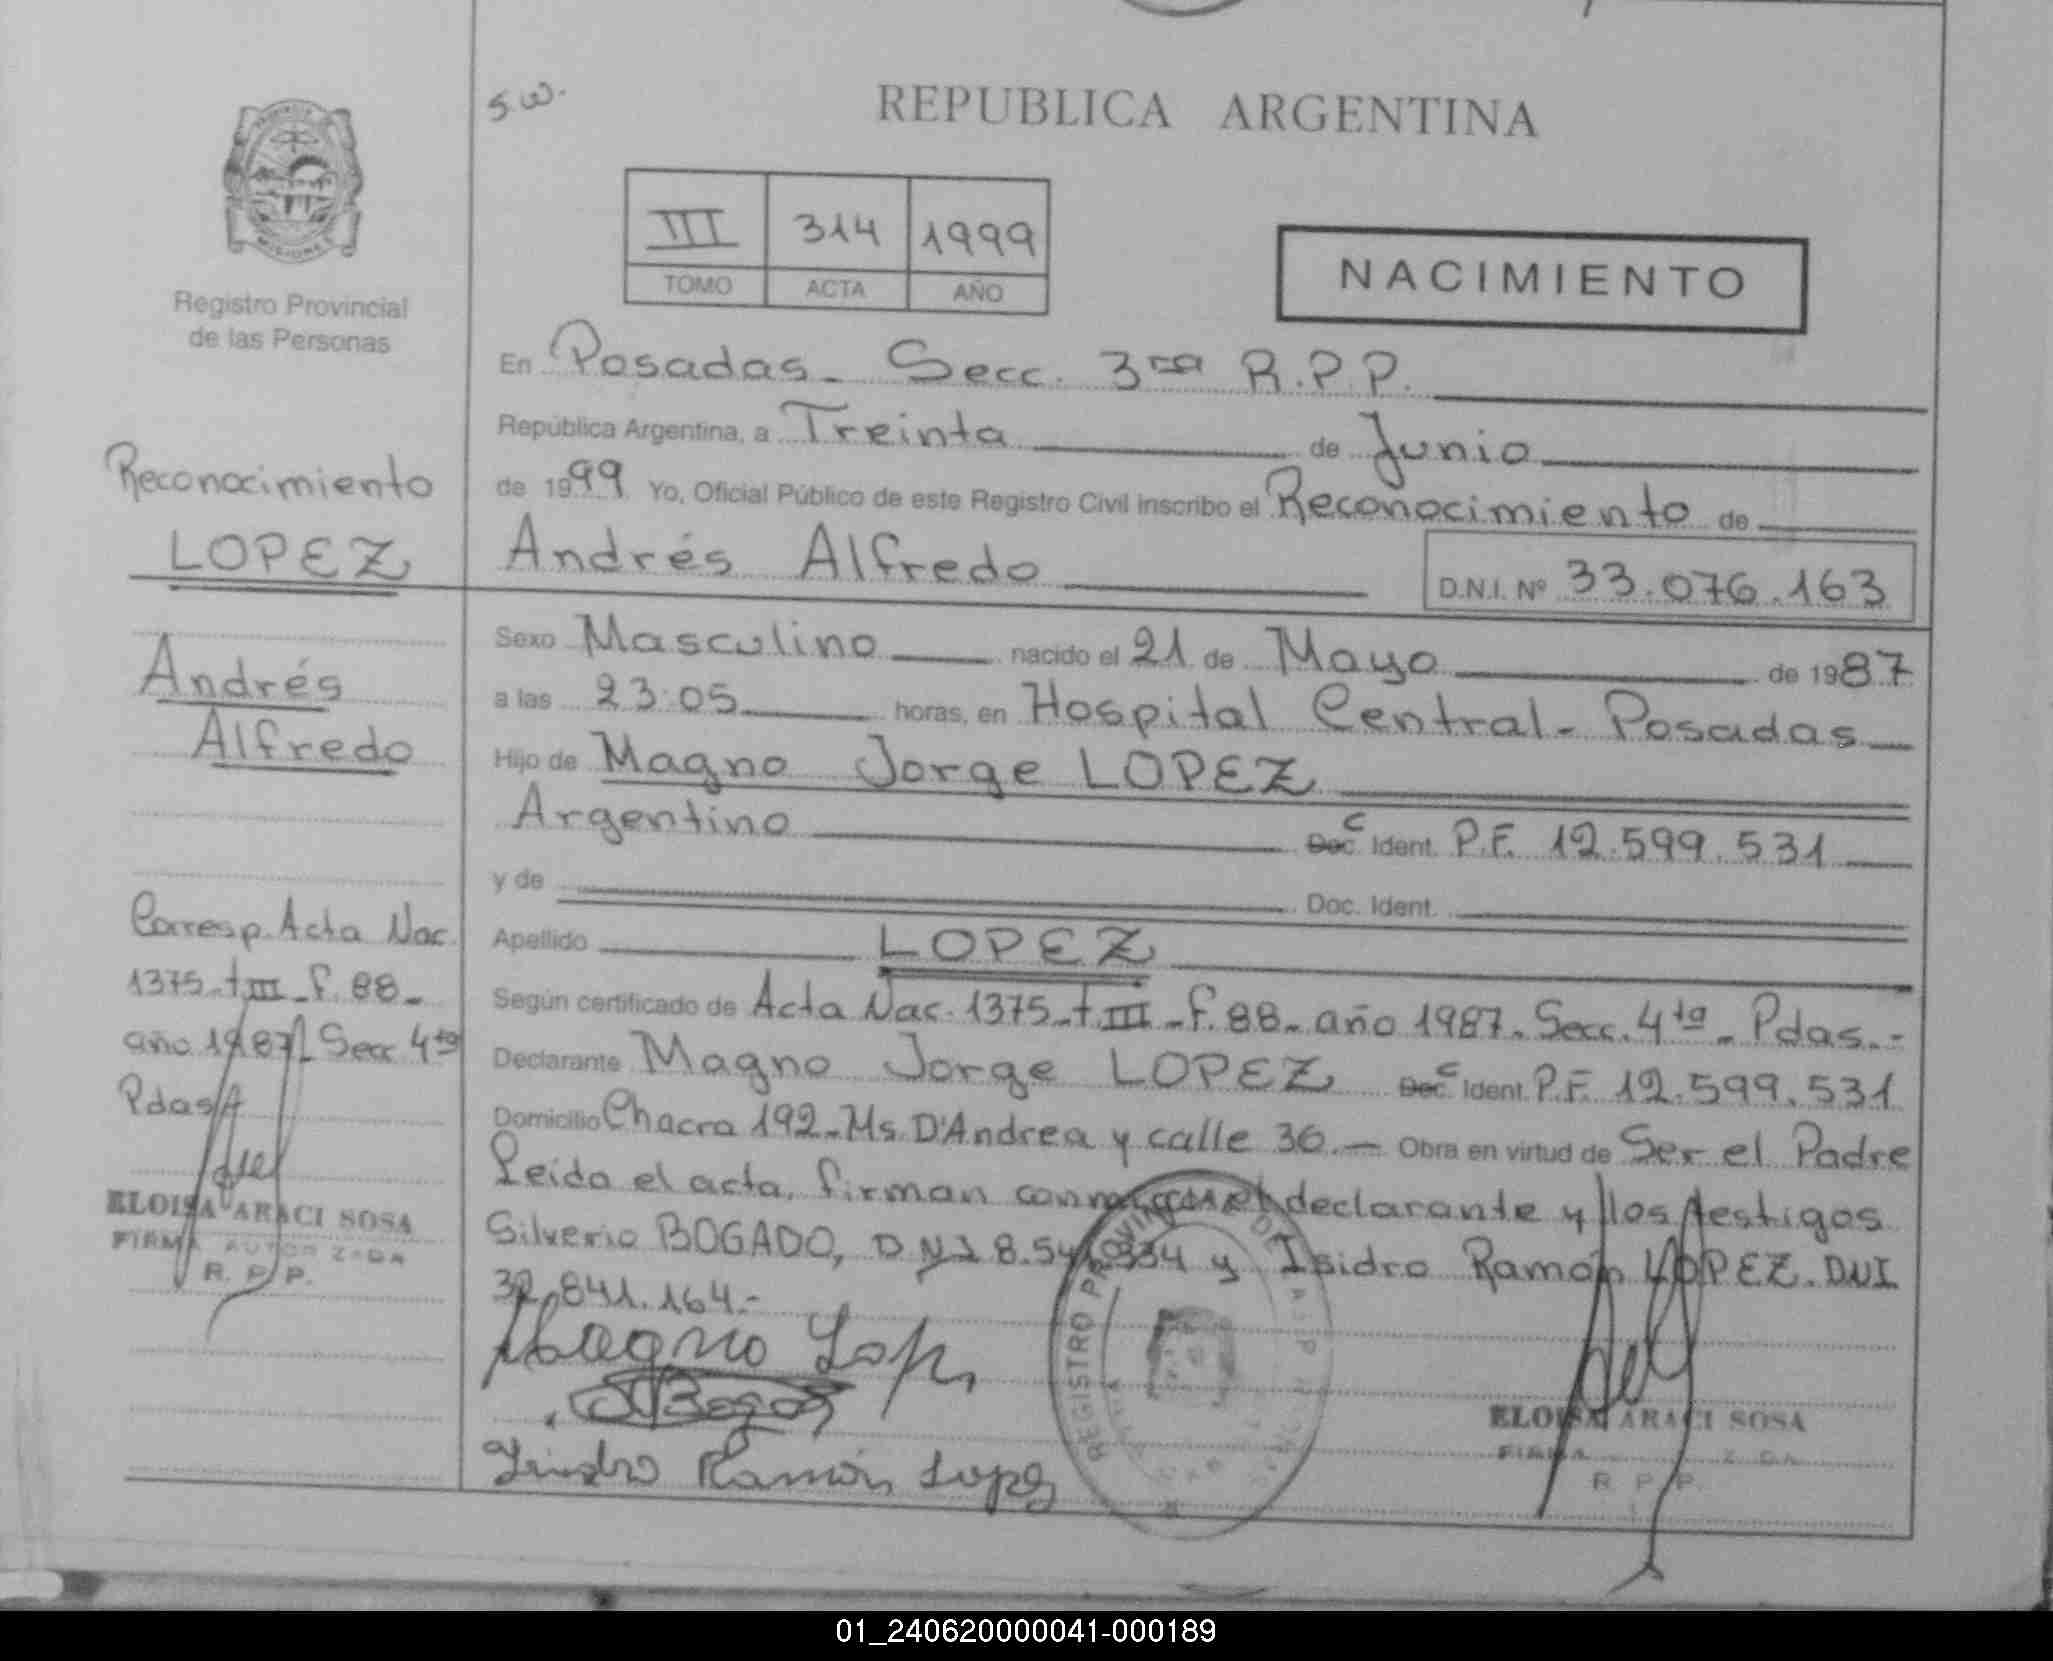 REPUBLICA ARGENTINA
S.W.
PROVINCIA
MISIONES
Registro Provincial
de las Personas
III 314 1999
TOMO ACTA AÑO
NACIMIENTO
En Posadas - Secc. 3ra R.P.P.
República Argentina, a Treinta de Junio
de 1999 Yo, Oficial Público de este Registro Civil inscribo el Reconocimiento de
Andrés Alfredo D.N.I. Nº 33.076.163
Sexo Masculino nacido el 21 de Mayo de 1987
a las 23:05 horas, en Hospital Central - Posadas
Hijo de Magno Jorge LOPEZ
Argentino Doc. C Ident. P.F. 12.599.531
y de Doc. Ident.
Apellido LOPEZ
Según certificado de Acta Nac. 1375 - t.III - f. 88 - año 1987 - Secc. 4ta - Pdas.-
Declarante Magno Jorge LOPEZ Doc. C Ident. P.F. 12.599.531
Domicilio Chacra 192 - Ms. D'Andrea y calle 36.- Obra en virtud de Ser el Padre
Leida el acta, firman declarante y los testigos
Silverio BOGADO, DNI y Isidro Ramón LOPEZ. DNI
32.841.164.-
Magno Lopez
Isidro Ramón Lopez
REGISTRO
ELOISA ARACI SOSA
FIRMA
R. P. P.
Reconocimiento
LOPEZ
Andrés
Alfredo
Corresp. Acta Nac.
1375 - t III - f. 88 -
año 1987 - Secc 4ta
Pdas
ELOISA ARACI SOSA
FIRMA AUTORIZADA
R. P. P.
01_240620000041-000189